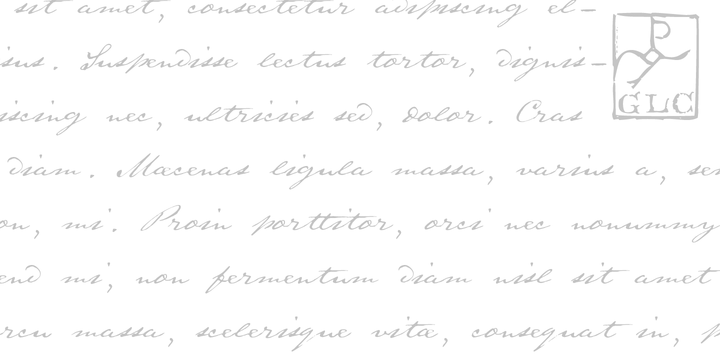 sit amet, consectetur adipiscing el-
isus. Suspendisse lectus tortor, dignis-
iscing nec, ultricies sed, dolor. Cras
GLC
diam. Mæcenas ligula massa, varius a, sem
on, mi. Proin porttitor, orci nec nonummy
end mi, non fermentum diam nisl sit amet
rcu massa, scelerisque vitæ, consequat in, p